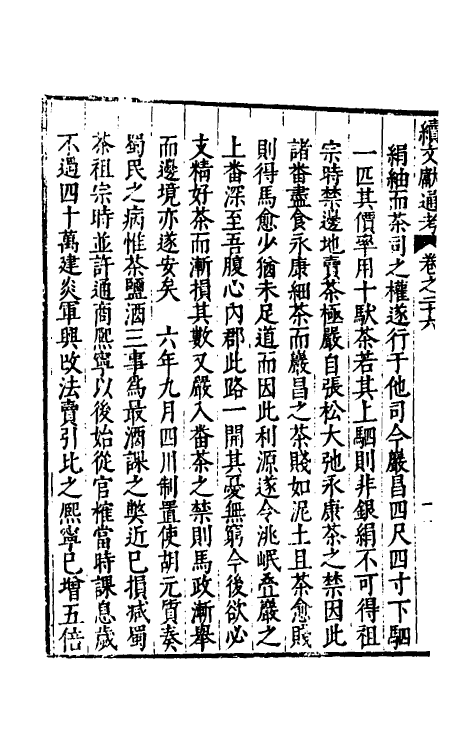 續文獻通考 卷之二十六
絹紬而茶司之權遂行于他司今巖昌四尺四寸下駟
一匹其價率用十䭾茶若其上駟則非銀絹不可得祖
宗時禁邊地賣茶極嚴自張松大弛永康茶之禁因此
諸畨盡食永康細茶而巖昌之茶賤如泥土且茶愈賤
則得馬愈少猶未足道而因此利源遂令洮岷疊巖之
上畨深至吾腹心內郡此路一開其憂無窮今後欲必
支精好茶而漸損其數又嚴入畨茶之禁則馬政漸舉
而邊境亦遂安矣 六年九月四川制置使胡元質奏
蜀民之病惟茶鹽酒三事爲最酒課之獘近已損減蜀
茶祖宗時並許通商熈寧以後始從官榷當時課息歲
不過四十萬建炎軍興改法賣引比之熈寧已增五倍